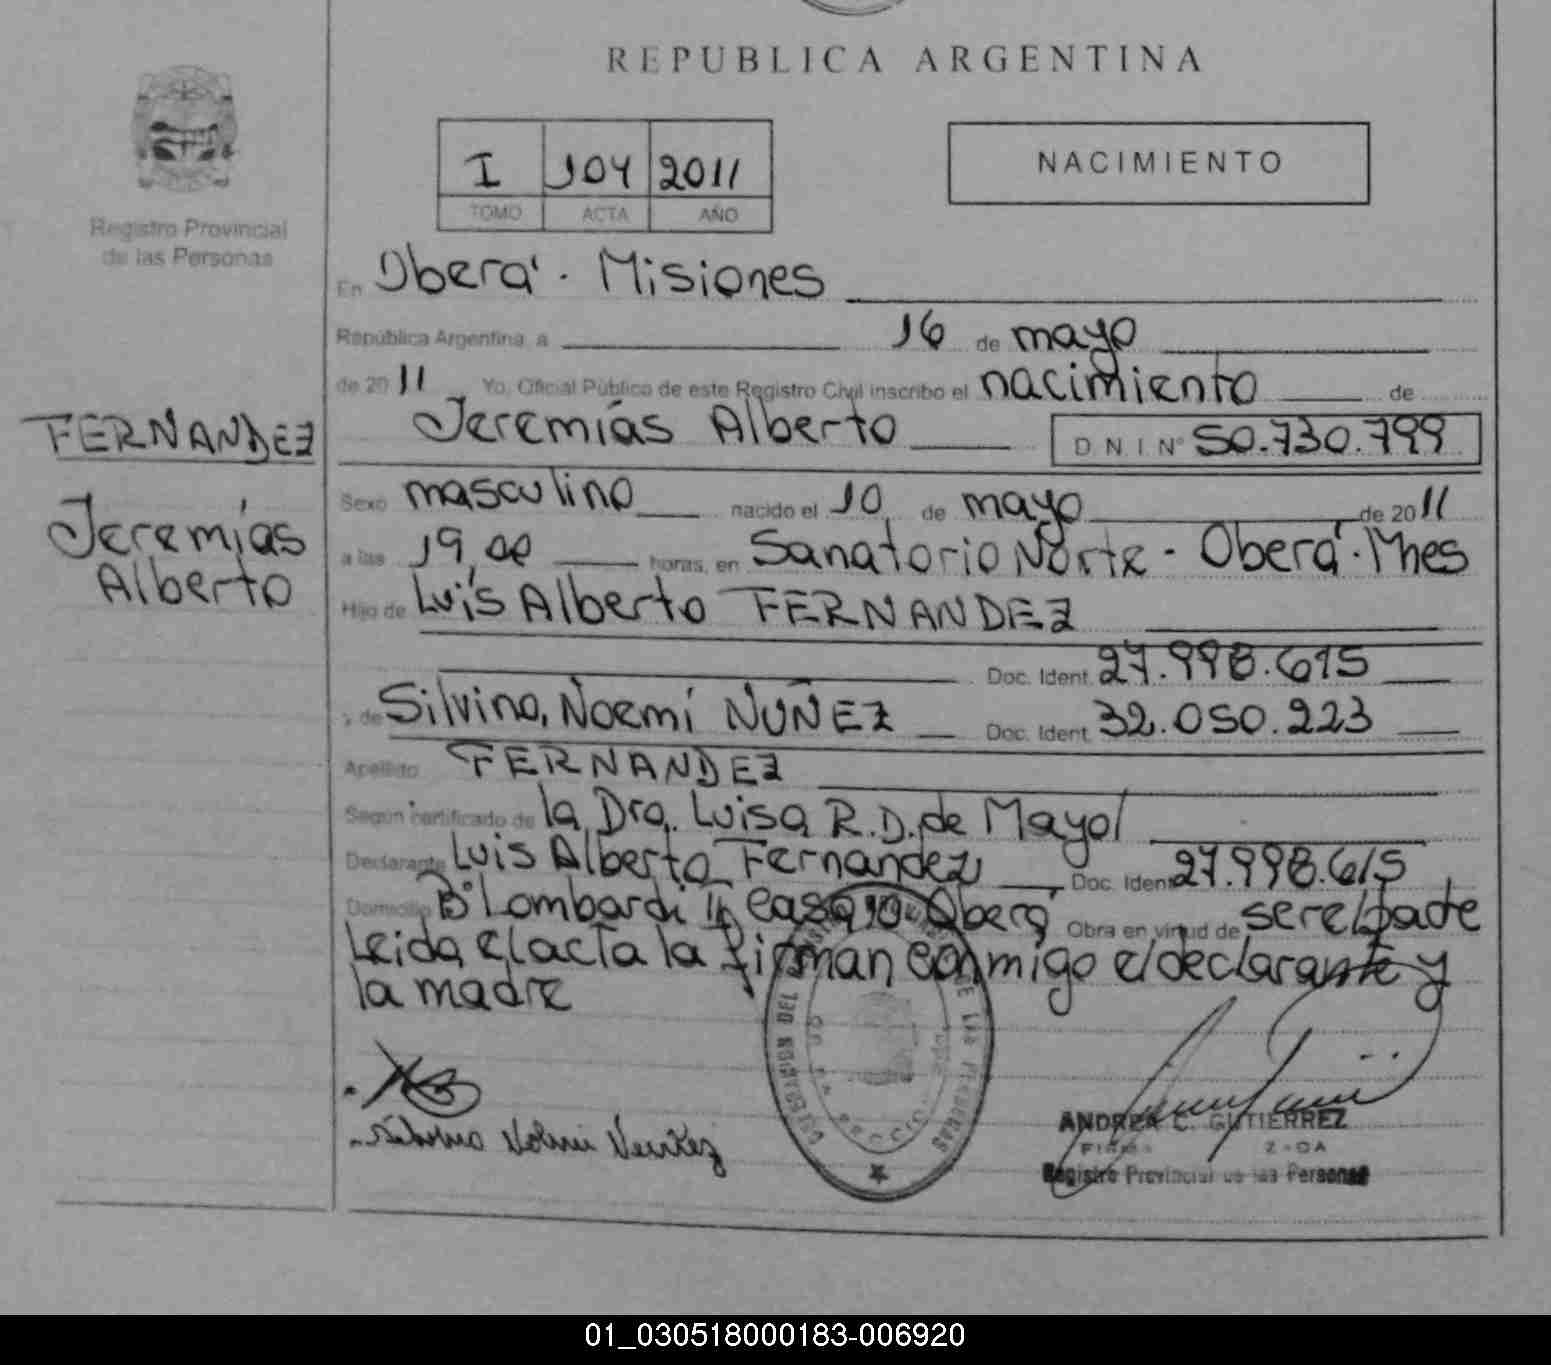 REPUBLICA ARGENTINA
I 104 2011
TOMO ACTA AÑO
NACIMIENTO
Registro Provincial
de las Personas
En Oberá. Misiones
República Argentina, a 16 de mayo
de 2011 Yo, Oficial Público de este Registro Civil inscribo el nacimiento de
Jeremías Alberto D.N.I. Nº 50.730.799
FERNANDEZ
Jeremías
Alberto
Sexo masculino nacido el 10 de mayo de 2011
a las 19,00 horas, en Sanatorio Norte - Oberá. Mnes
Hijo de Luis Alberto FERNANDEZ
Doc. Ident. 27.998.615
y de Silvina, Noemí NUÑEZ Doc. Ident. 32.050.223
Apellido FERNANDEZ
Según certificado de la Dra. Luisa R.D. de Mayol
Declarante Luis Alberto Fernandez Doc. Ident 27.998.615
Domicilio Bº Lombardi casa Oberá Obra en virtud de ser el padre
Leida el acta la firman conmigo el declarante y
la madre
ANDREA C. GUTIERREZ
Registro Provincial de las Personas
01_030518000183-006920